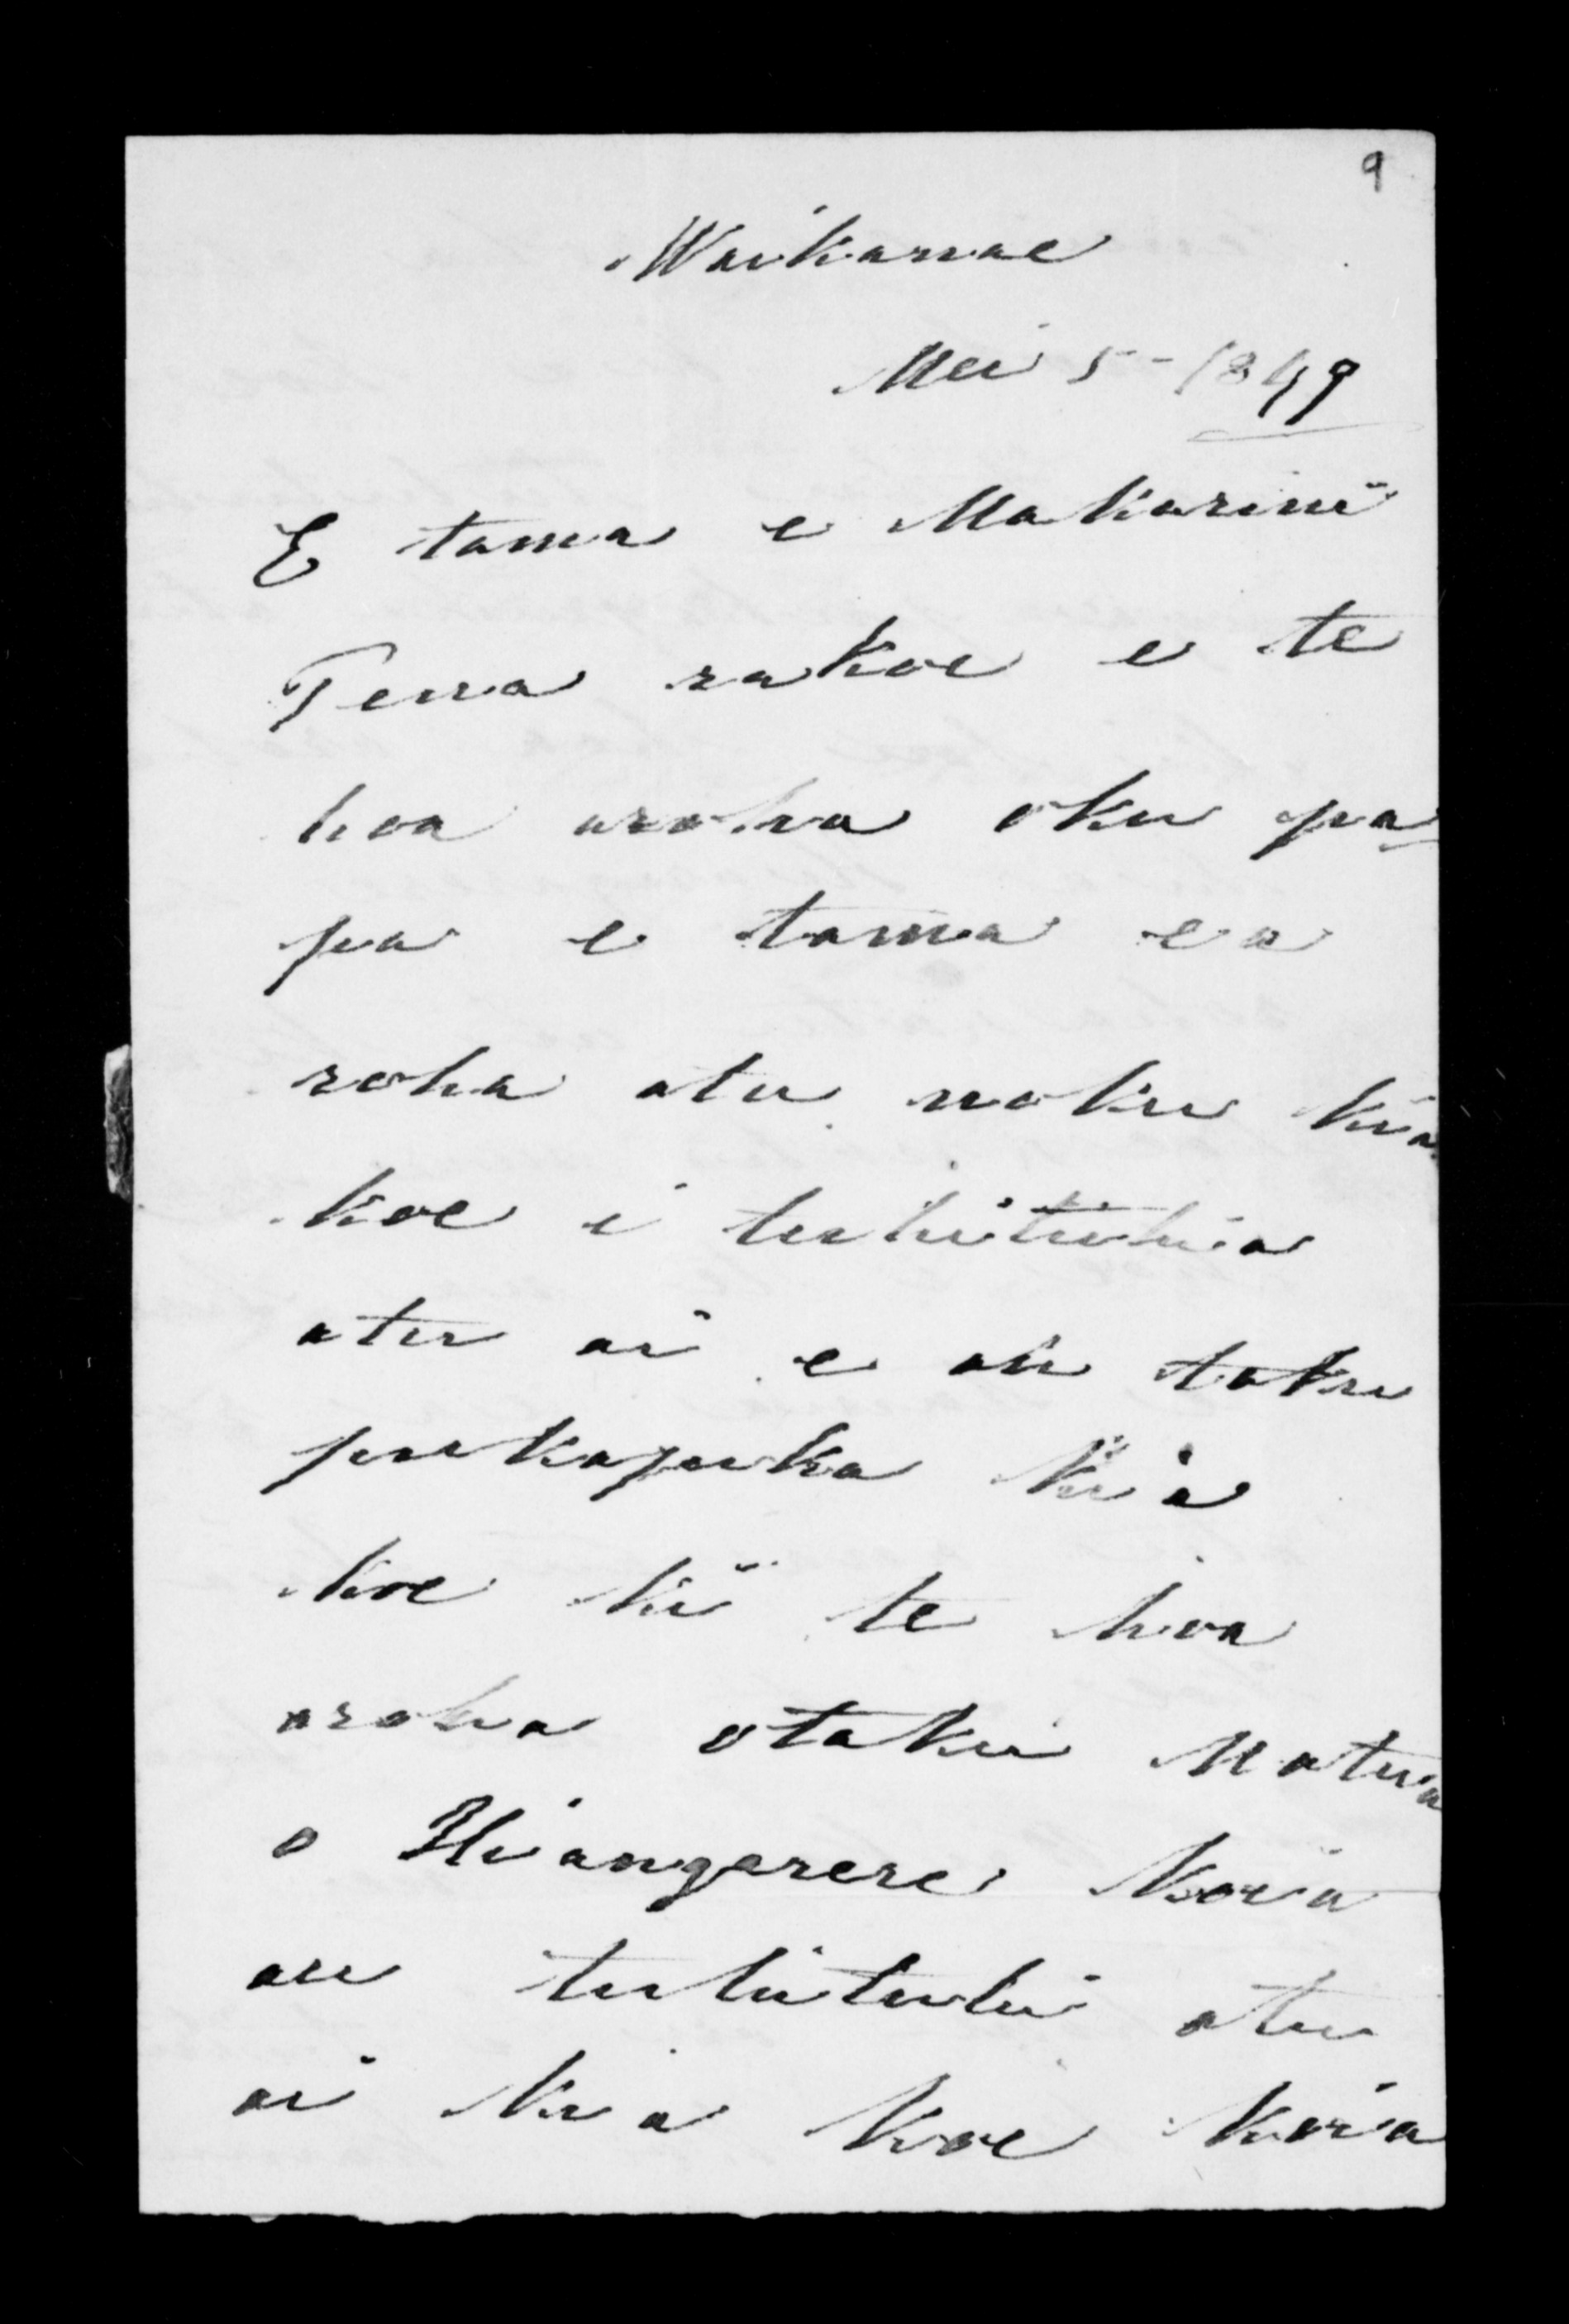 9
Waikanae
Mei 5 - 1849
E tama e Makarini
Tena ra koe e te
hoa aroha oku pa
pa e tama e a
roha atu noku kia
koe i tuhituhia
atu ai e au taku
pukapuka kia
koe ki te hoa
aroha otaku Matua
o Hiangarere Koia
au tuhituhi atu
ai kia koe koia